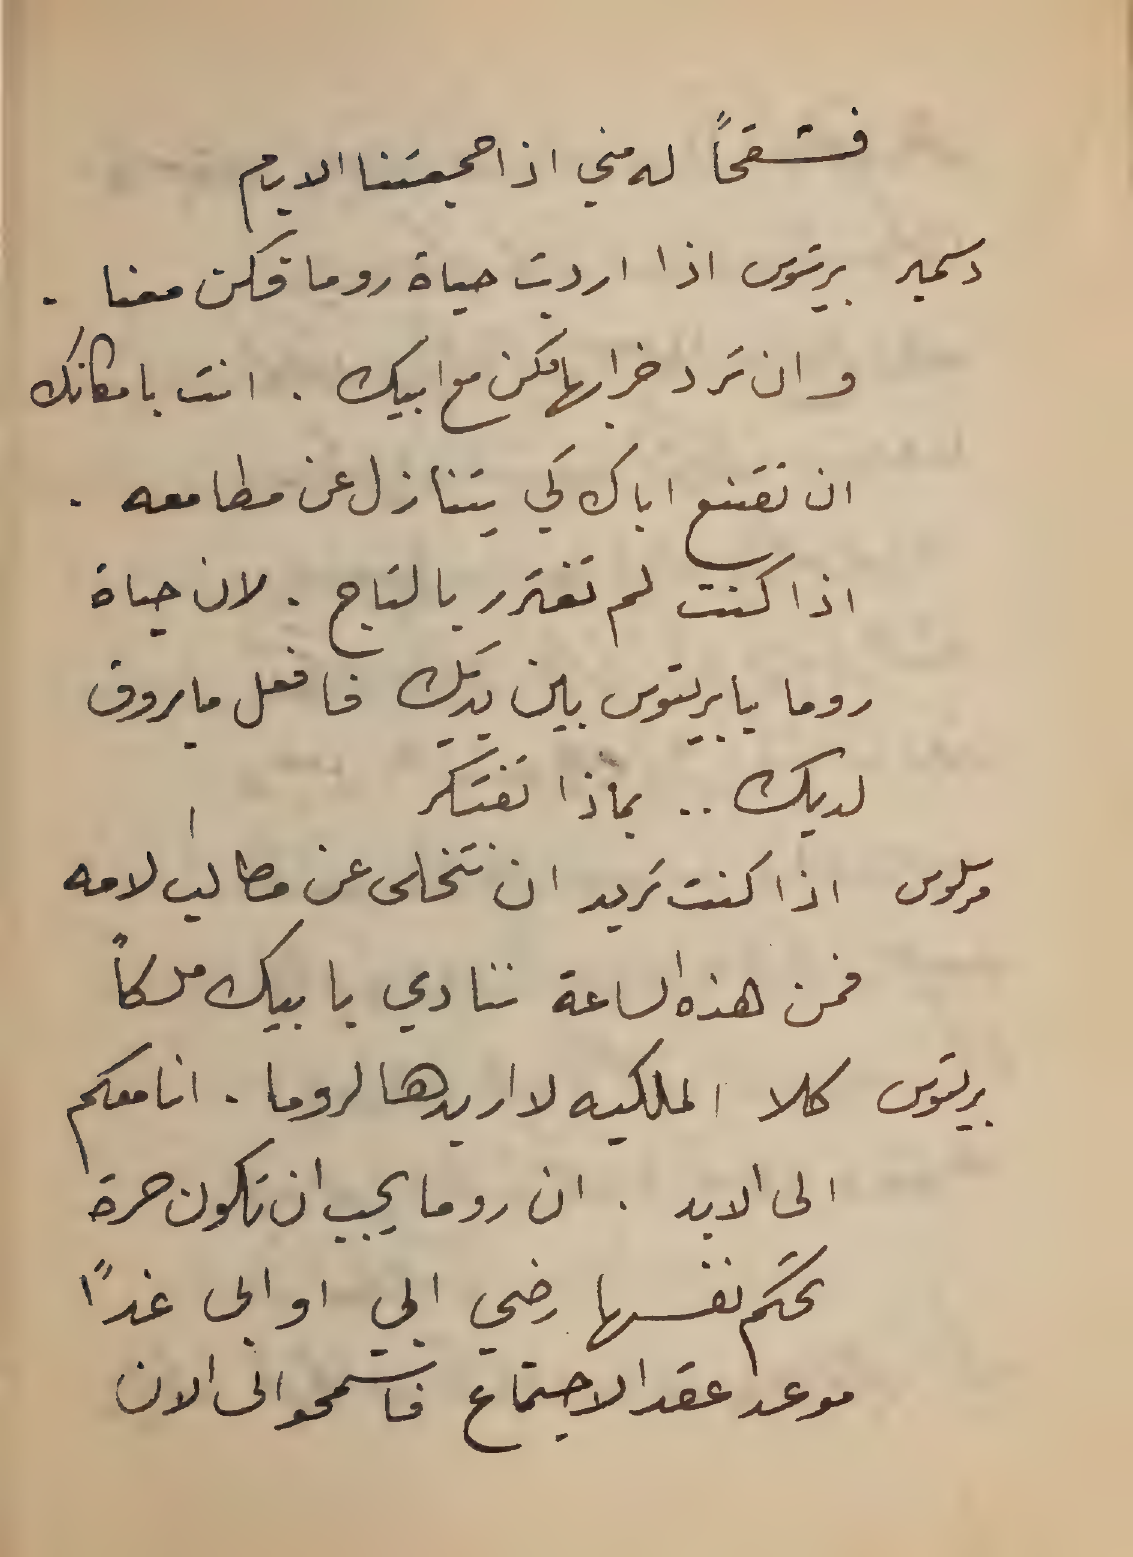 فشقحاً له مني اذا جمعتنا الايام
دسمير بريتوس اذا اردت حياة روما فكن معنا .
وان ترد خرابها فكن مع ابيك . انت بامكانك
ان تقنع اباك كي يتنازل عن مطامعه .
اذا كنت لم تغترر بالتاج . لان حياة
روما يا بريتوس بين يديك فافعل ما يروق
لديك .. بماذا تفتكر
مرسلوس اذا كنت تريد ان نتخلى عن مطاليب الامه
فمن هذه الساعة ننادي بابيك ملكاً
بريتوس كلا الملكيه لا اريدها لروما . انا معكم
الى الابد . ان روما يجب ان تكون حرة
تحكم نفسها رضي ابي او ابى غداً
موعد عقد الاجتماع فاسمحوا لى الان